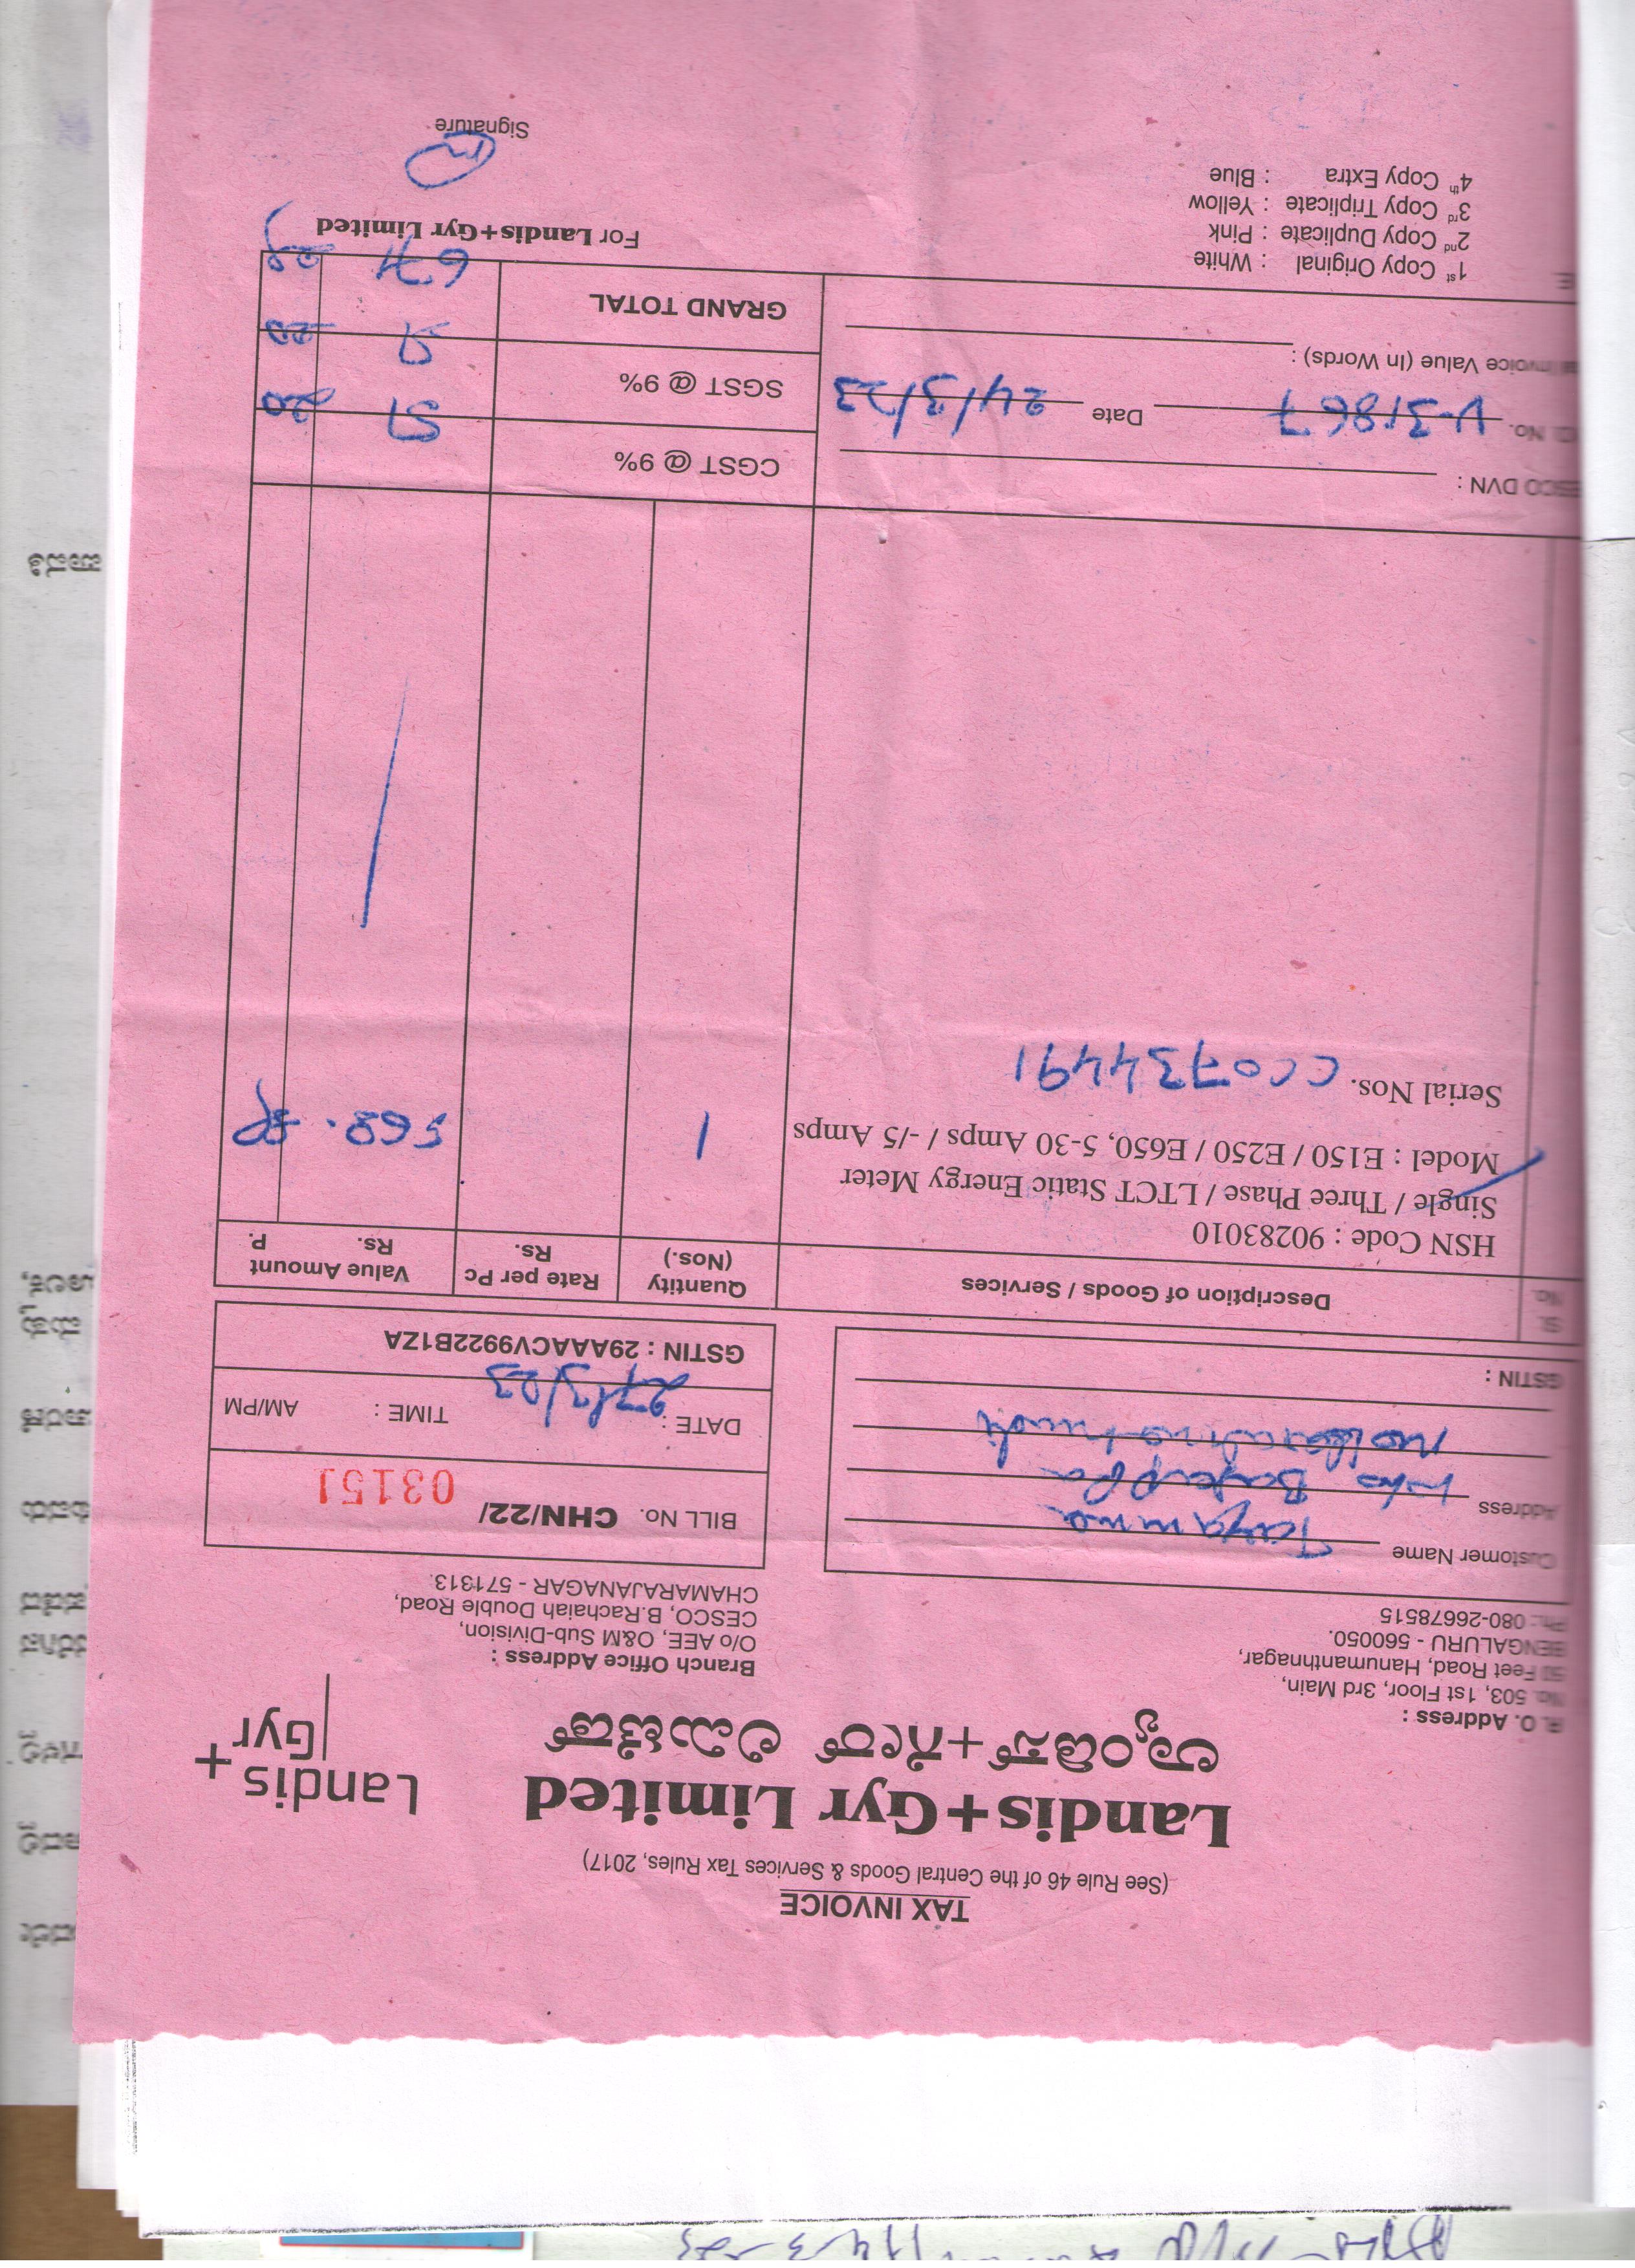 TAX INVOICE
(See Rule 46 of the Central Goods & Services Tax Rules, 2017)
Landis+Gyr Limited
ಲ್ಯಾಂಡಿಸ್+ಗೀರ್ ಲಿಮಿಟೆಡ್
Landis
Gyr+
R. O. Address :
No. 503, 1st Floor, 3rd Main,
50 Feet Road, Hanumanthnagar,
BENGALURU - 560050.
Ph.: 080-26678515
Branch Office Address :
O/o AEE, O&M Sub-Division,
CESCO, B.Rachaiah Double Road,
CHAMARAJANAGAR - 571313.
Customer Name Tayamma
Address
GSTIN :
BILL No. CHN/22/ 03151
DATE : 27/3/23 TIME : AM/PM
GSTIN : 29AAACV9922B1ZA
Sl. No. Description of Goods / Services Quantity (Nos.) Rate per Pc Rs. Value Amount Rs. P.
HSN Code : 90283010
Single / Three Phase / LTCT Static Energy Meter
Model : E150 / E250 / E650, 5-30 Amps / -/5 Amps 1 568.
Serial Nos. CC0734491
CESCO DVN :
No. V-31867 Date 24/3/23
CGST @ 9% 51 20
SGST @ 9% 51 20
Invoice Value (In Words) :
GRAND TOTAL 671
1st Copy Original : White
2nd Copy Duplicate : Pink
3rd Copy Triplicate : Yellow
4th Copy Extra : Blue
For Landis+Gyr Limited
Signature